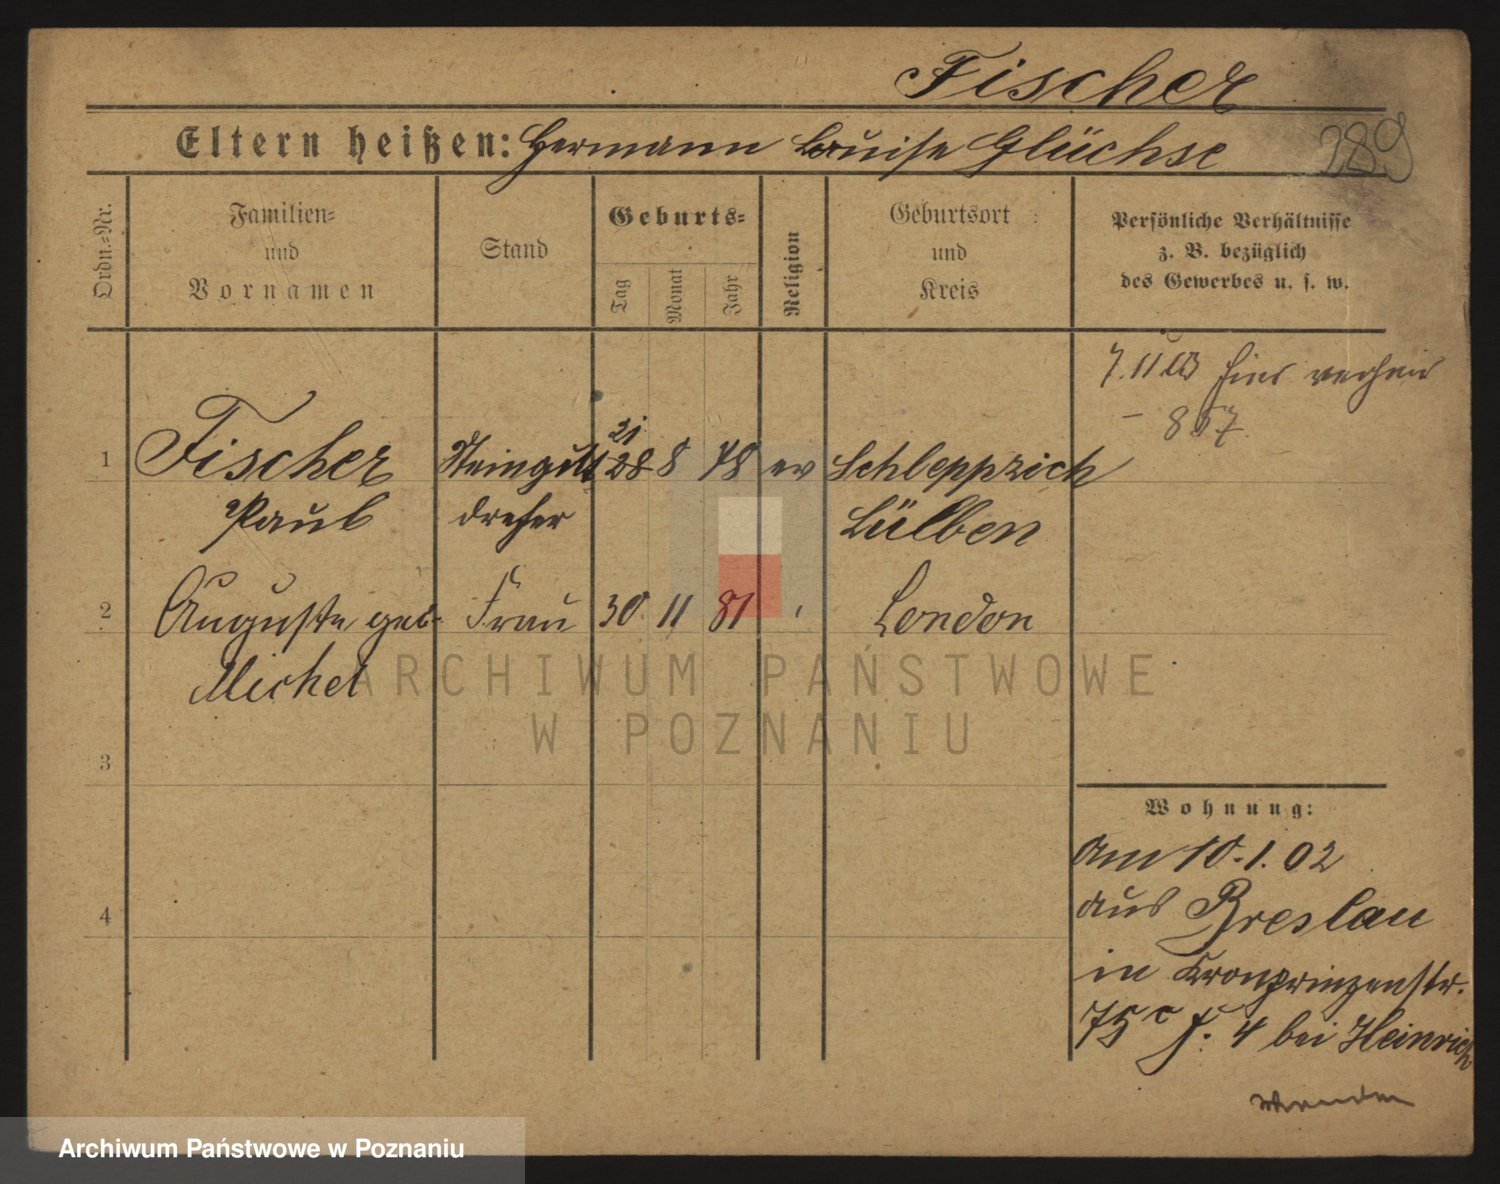 Fischer
Eltern heißen: Hermann Louise Glüchse
289
Ordn.-Nr.
Familien-
und
Vornamen
Stand
Geburts-
Tag
Monat
Jahr
Religion
Geburtsort
und
Kreis
Persönliche Verhältnisse
z. B. bezüglich
des Gewerbes u. s. w.
7.11.03 hier
– 857
21
1 Fischer 28 8 78 ev Schleppzich
Paul dreher Lülben
2 Auguste geb. Frau 30 11 81 London
Michel
3
4
Wohnung:
am 10.1.02
aus Breslau
in Kronprinzenstr.
75c I. 4 bei Heinrich
wenden
ARCHIWUM PAŃSTWOWE
W POZNANIU
Archiwum Państwowe w Poznaniu